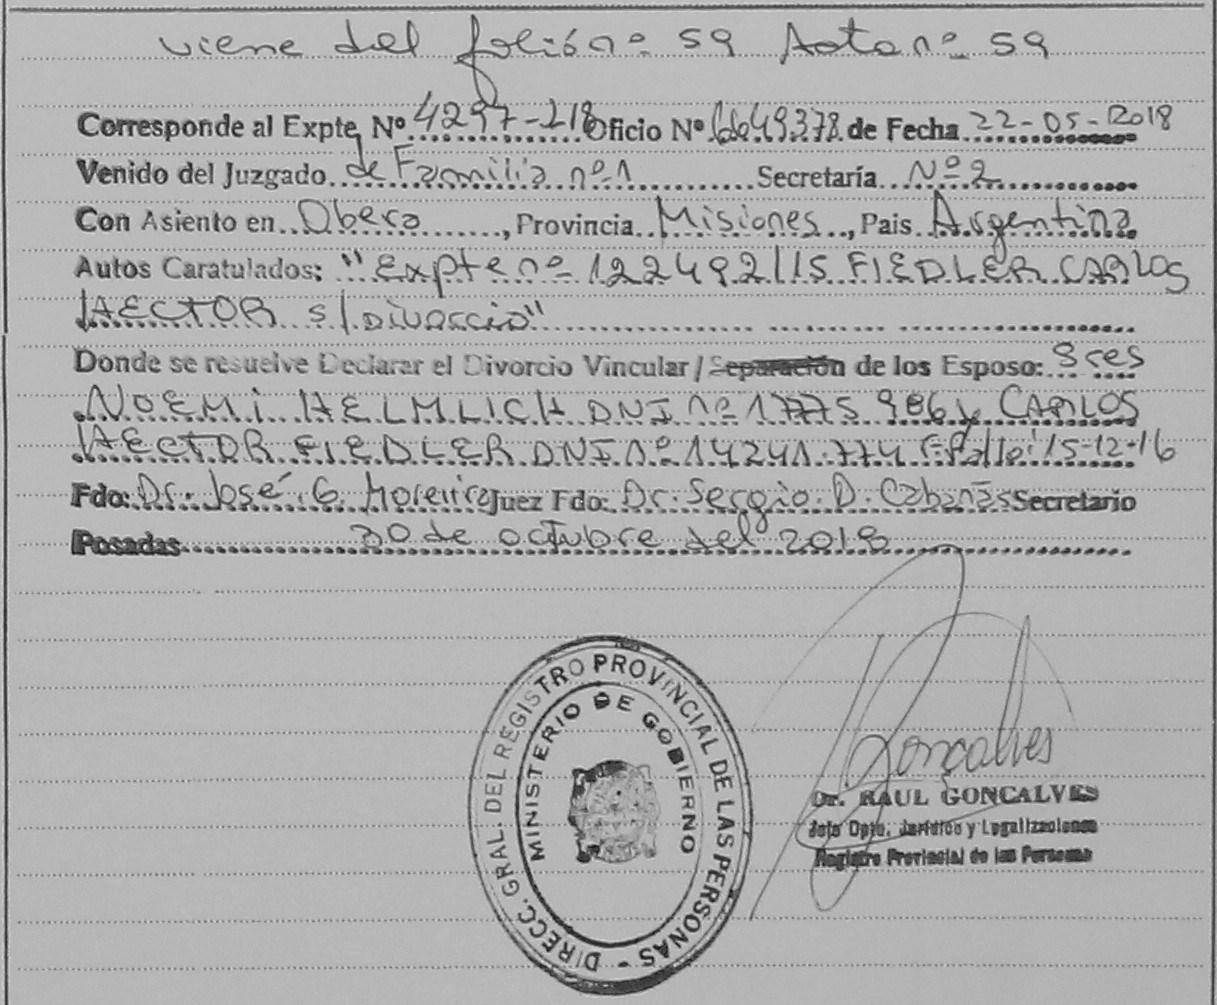 viene del folio nº 59 Acta nº 59
Corresponde al Expte Nº 4297-218 Oficio Nº 49378 de Fecha 22-05-2018
Venido del Juzgado de Familia nº 1 Secretaría Nº 2
Con Asiento en Obera, Provincia Misiones, Pais Argentina
Autos Caratulados: "Expte nº 122492/15 FIEDLER CARLOS
HECTOR s/ Divorcio"
Donde se resuelve Declarar el Divorcio Vincular / Separación de los Esposo: Sres
NOEMI HELMLICH DNI nº 17.775.906 y CARLOS
HECTOR FIEDLER DNI nº 14241.774 Fallo: 15-12-16
Fdo: Dr. José G. Moreira Juez Fdo: Dr. Sergio D. Cabañas Secretario
Posadas 30 de octubre del 2018
DIRECC. GRAL. DEL REGISTRO PROVINCIAL DE LAS PERSONAS -
MINISTERIO DE GOBIERNO
Goncalves
Dr. RAUL GONCALVES
Jefe Dpto. Jurídico y Legalizaciones
Registro Provincial de las Personas